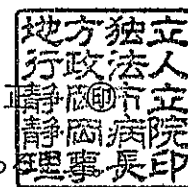 地方独立
行政法人
静岡市立
静岡病院
理事長印
㊞